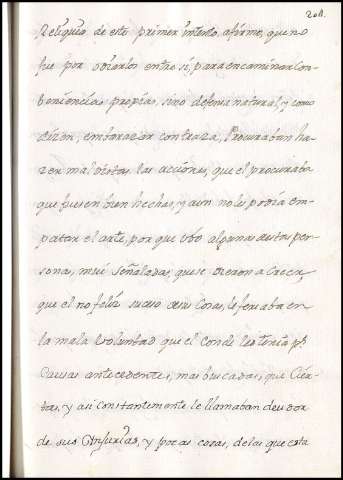 208.
Reliquia de este primer intento, afirmo, que no
fue por odiarlos entre sí, para encaminar con-
beniencias propias, sino defensa natural, y como
dizen, embarazar con traza, Procuraban ha-
zer mal vistas las acciones, que el procuraba
que fuesen bien hechas, y aun no les podia em-
patar el arte, por que vbo algunas destas per-
sonas, mui señaladas, que se dieron a Creer,
que el no feliz suceso de sus Cosas, le fraguaba en
la mala Voluntad que el Conde les tenia pr.
Causas antecedentes, mas buscadas, que Cier-
tas, y asi constantemente le llamaban deudor
de sus Injurias, y pocas cosas, de las que esta